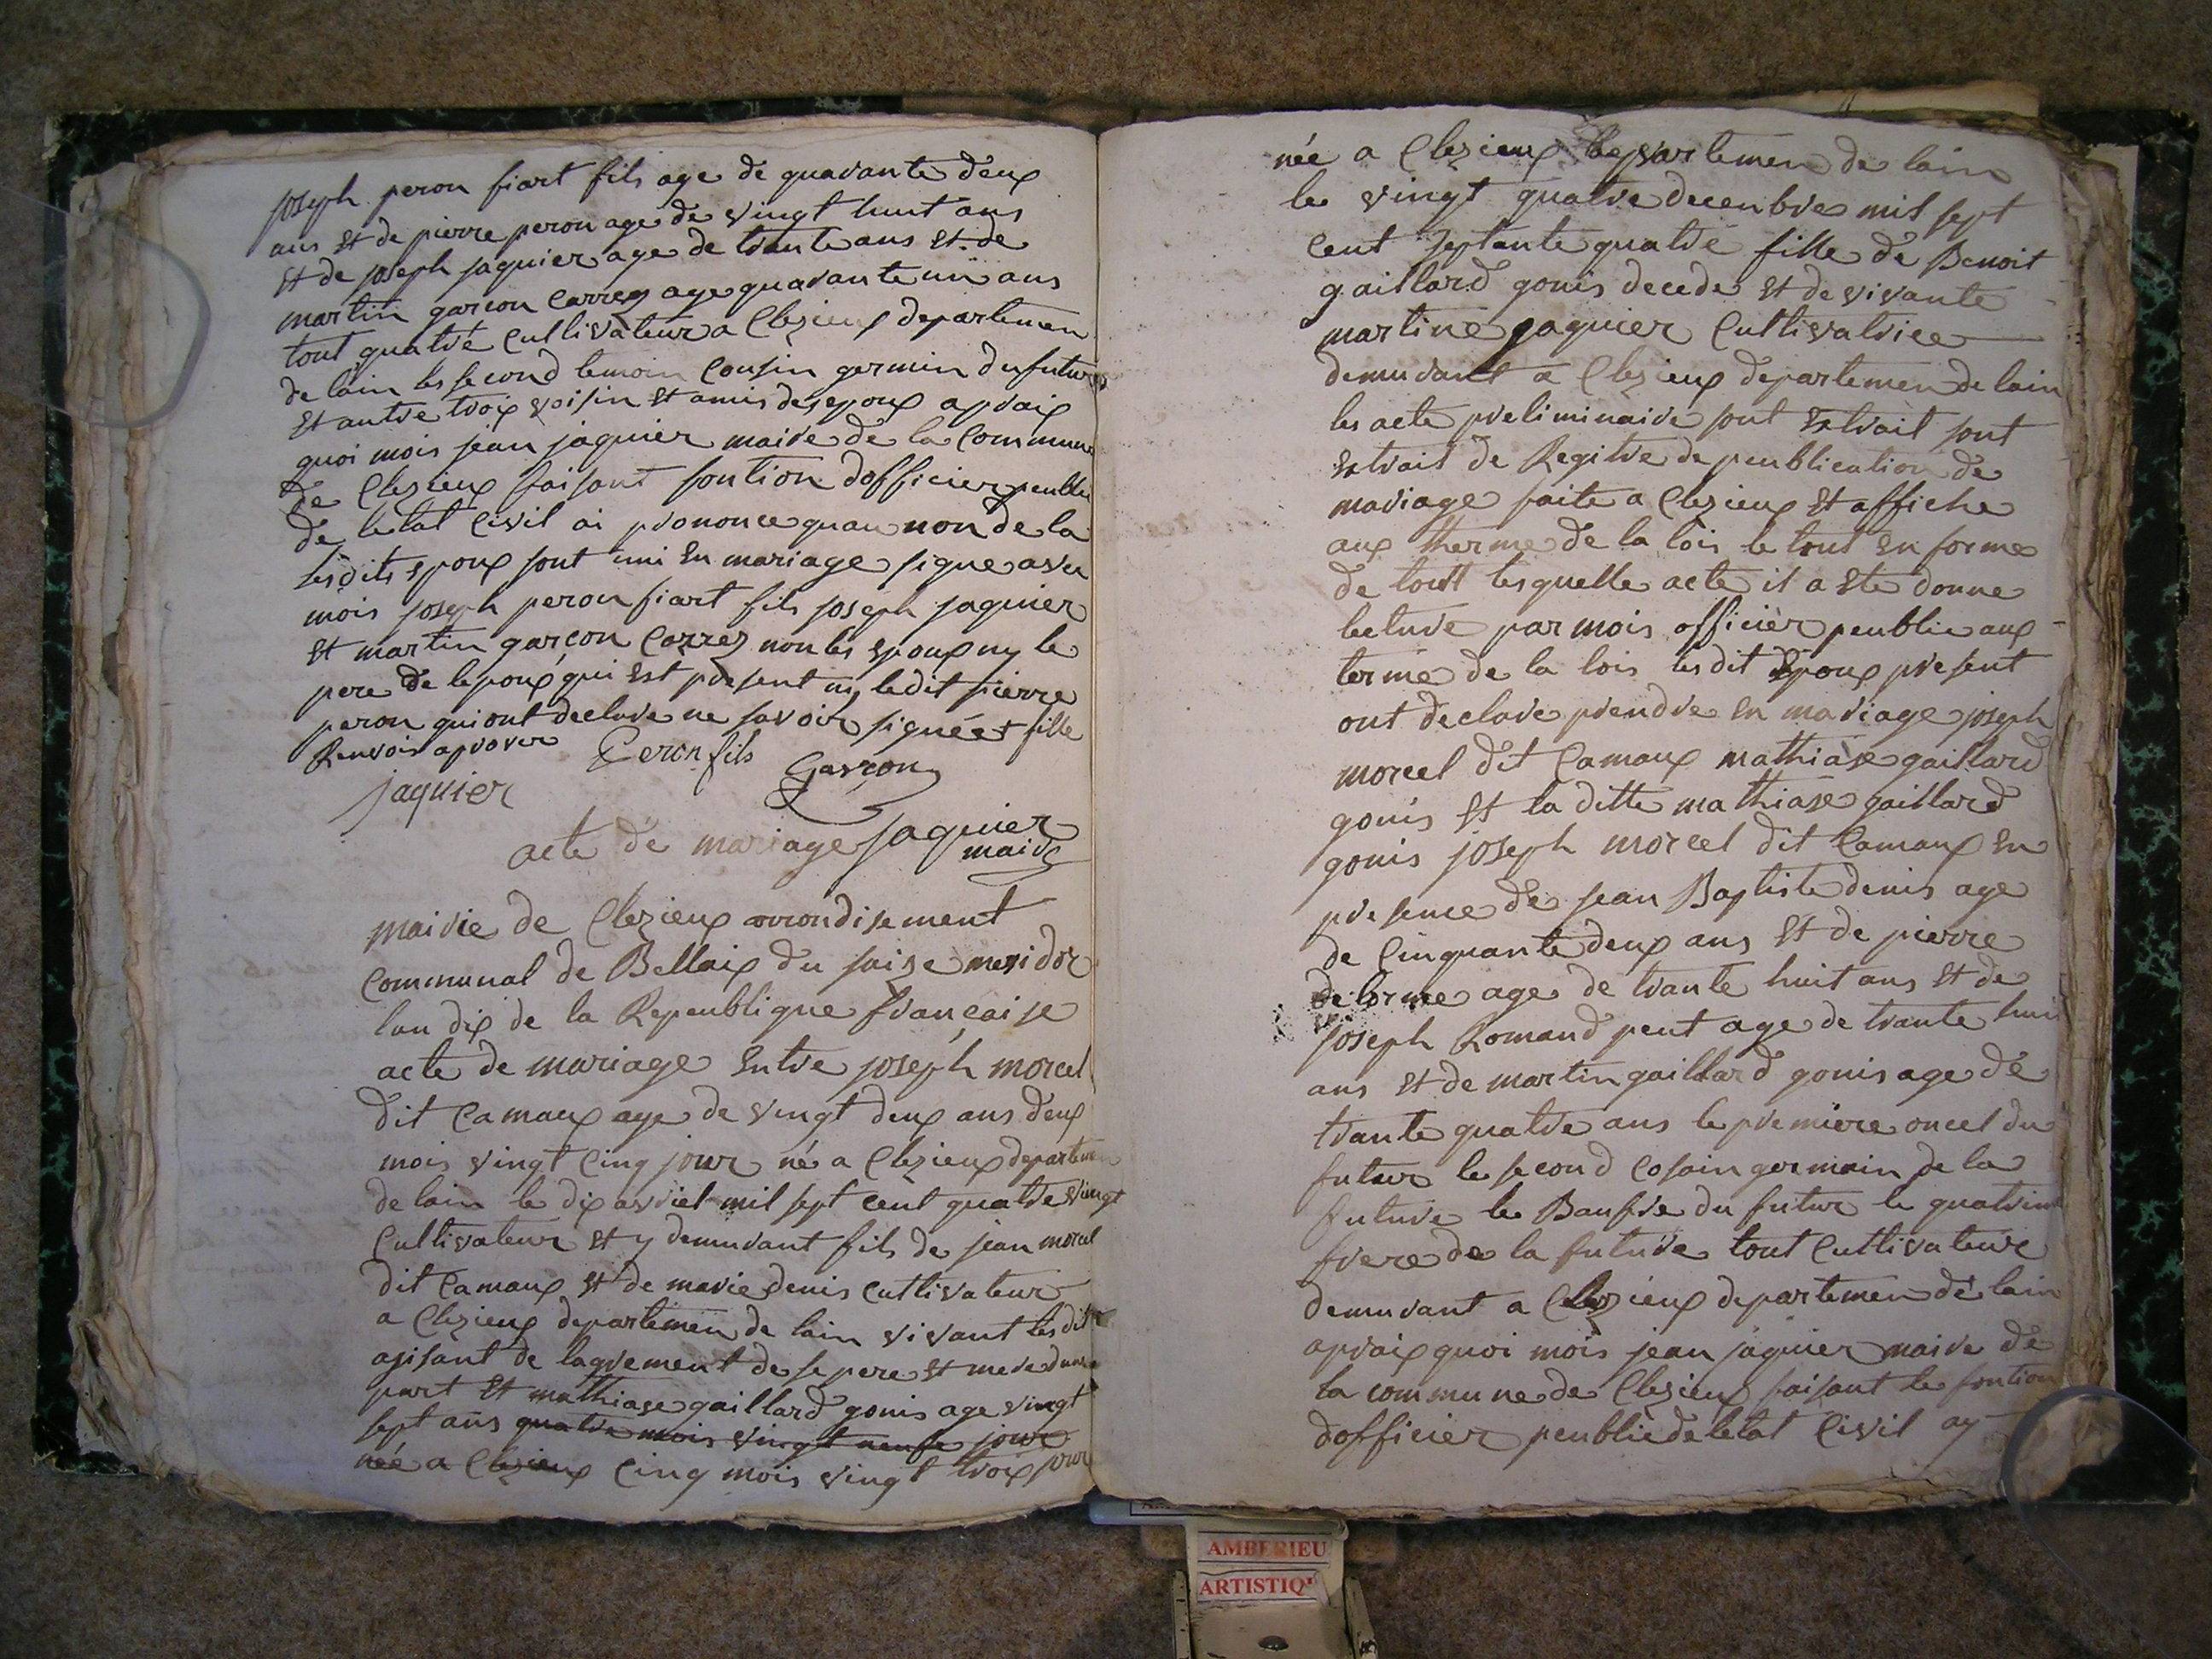 joseph peron fiart fils age de quarante deux
ans et de pierre peron age de vingt huit ans
et de joseph jaquier age de trante ans et de
martin garcon Carrez age quarante un ans
tout quatre Cultivateur a Clezieux departemen
de lain les second temoin Cousin germin du futur
et autre troix voisin et amis des epoux apraix
quoi mois jean jaquier maire de la Commune
de Clezieux faisant fontion dofficier peublic
de letat Civil ai prononce quau non de la
lesdits epoux sont uni en mariage signe avec
mois joseph peron fiart fils joseph jaquier
et martin garçon Correz non les epoux ny le
pere de lepoux qui est present ny ledit pierre
peron qui ont declare ne savoir signée + fille
Renvois aprover Peron fils
Garçon
jaquier
acte de mariage jaquier
maire
mairie de Clezieux arrondisement
Communal de Bellaix du saize mesidor
lan dix de la Repeublique française
acte de mariage entre joseph morcel
dit Camaux age de vingt deux ans deux
mois vingt cinq jour né a Clezieux departemen
de lain le dix avriel mil sept cent quatre vingt
Cultivateur et y demurant fils de jean morcel
dit Camaux et de marie denis Cultivateur
a Clezieux departemen de lain vivant lesdit
agisant de lagrement de se pere et mere dune
part et mathiase gaillard gonis age vingt
sept ans quatre mois vingt neufe jour
née a Clezieux cinq mois vingt troix jour
née a Clezieux departemen de lain
le vingt quatre decenbre mil sept
cent septante quatre fille de Benoit
gaillard gonis decede et de vivante
martine jaquier Cultivatrice
demurant a Clezieux departemen de lain
les acte preliminaire sont extrait sont
extrait de Regitre de peublication de
mariage faite a Clezieux et affiche
aux therme de la lois le tout en forme
de toutt lesquelle acte il a ete donne
lecture par mois officièr peublic aux
terme de la lois lesdit Epoux present
ont declare prendre en mariage joseph
morcel dit Camaux mathiàse gaillard
gonis et la ditte mathiase gaillard
gonis joseph morcel dit Camaux en
presence de jean Baptiste denis age
de Cinquante deux ans et de pierre
delorme age de trante huit ans et de
joseph Romand peut age de trante huit
ans et de martin gaillard gonis age de
trante quatre ans le premiere oncel du
futur le second Cosain germain de la
future le Baufre du futur le quatrim
frere de la future tout Cultivateur
demurant a Clezieux departemen de lain
apraix quoi mois jean jaquier maire de
la commune de Clezieux faisant le fontion
dofficier peublic de letat Civil ay
AMBERIEU
ARTISTIQ